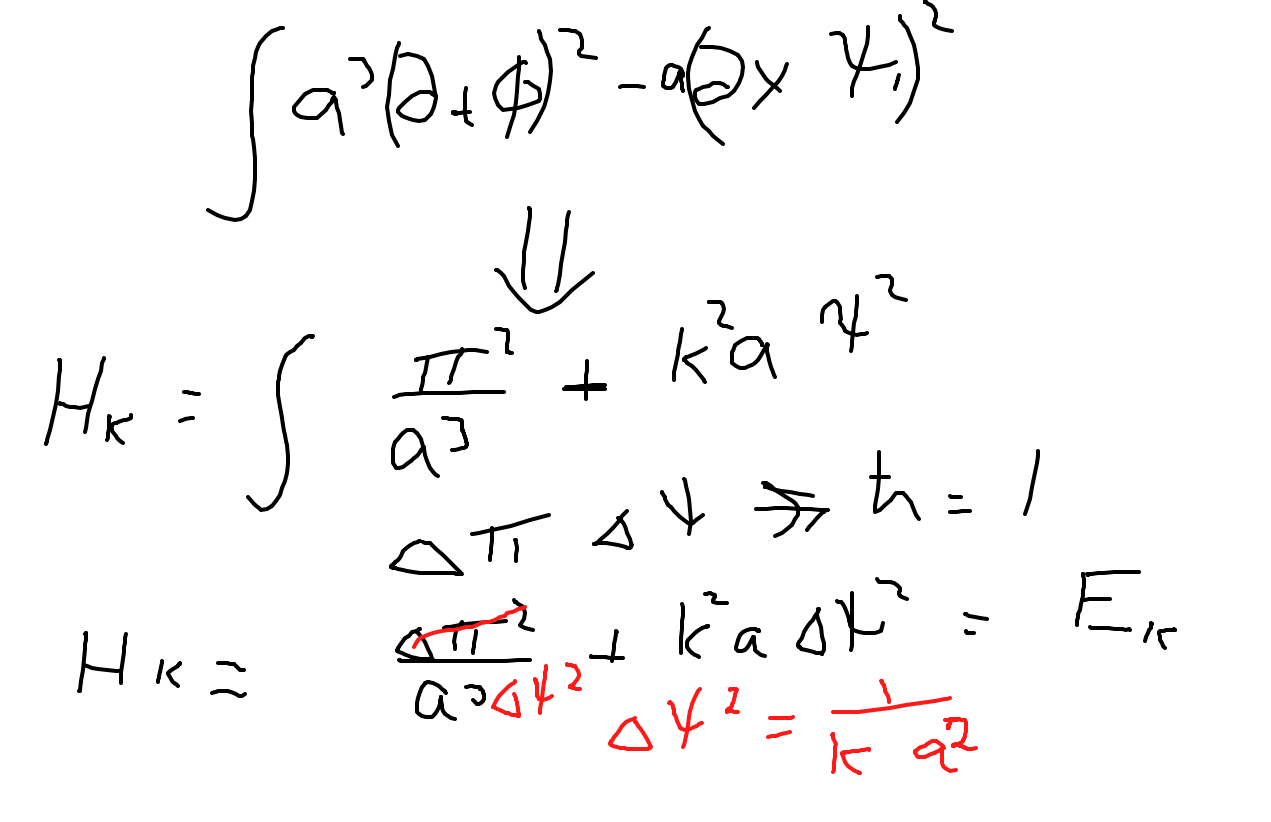 ∫ a³(∂ₜ ϕ)² − a(∂ₓ ψ)²
⇓
Hₖ = ∫ π²/a³ + k²a ψ²
Δπ Δψ ≫ ħ = 1
Hₖ = Δπ²/a³Δψ² + k²a Δψ² = Eₖ
Δψ² = 1/(k a²)